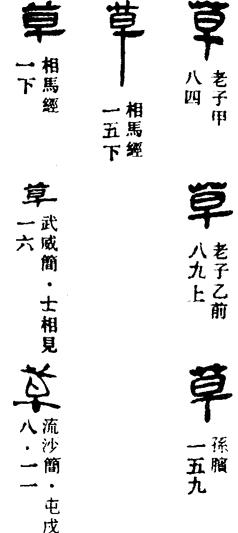 草
老子甲
八四
草
老子乙前
八九上
草
孫臏
一五九
草
相馬經
一五下
草
相馬經
一下
草
武威簡・士相見
一六
草
流沙簡・屯戍
八・一一